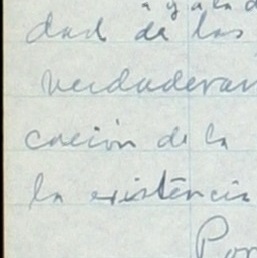 dad de las
verdaderam
cación de la
la existencia
Por